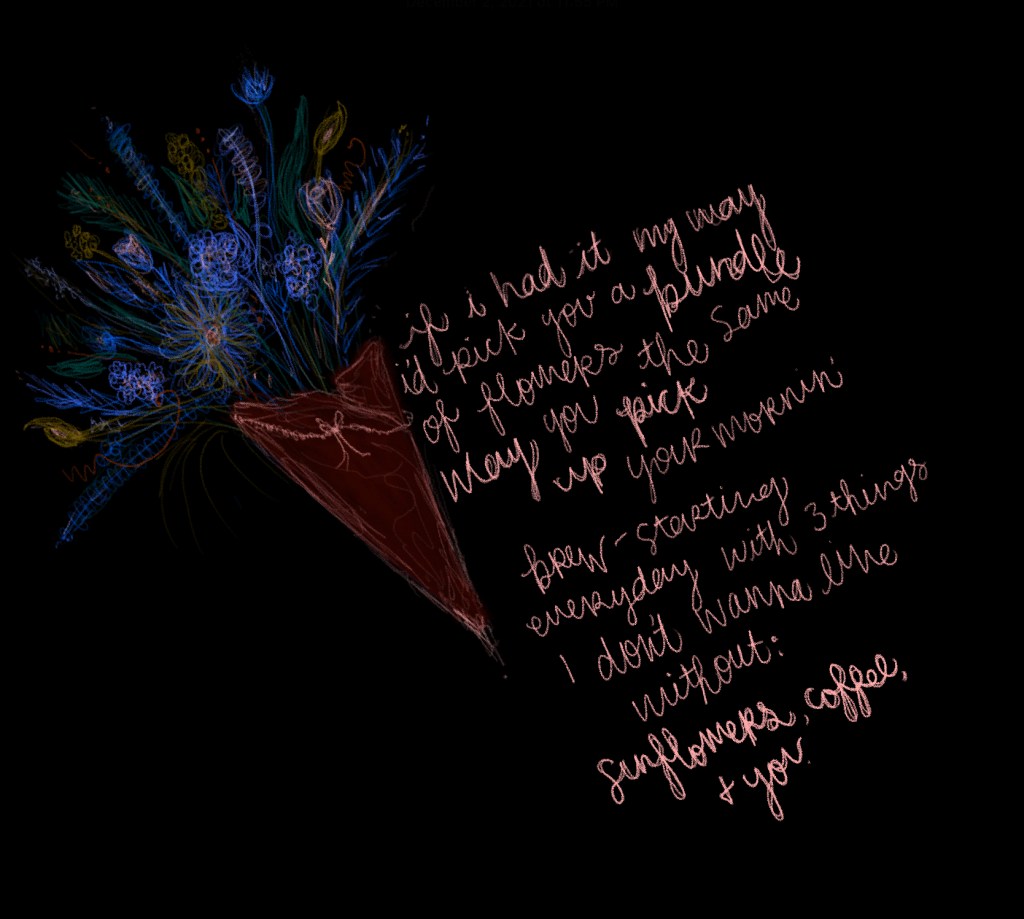 if i had it my way
i'd pick you a bundle
of flowers the same
way you pick
up your mornin'
brew - starting
everyday with 3 things
I don't wanna live
without:
sunflowers, coffee,
+ you.